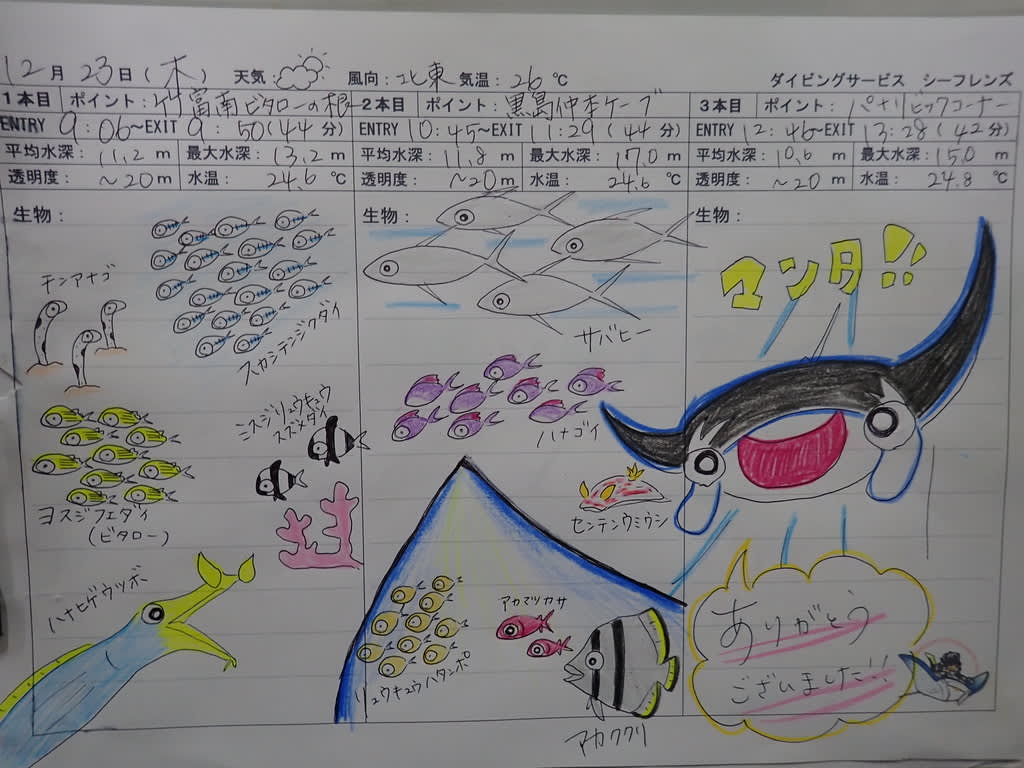 12月 23日(木) 天気: 風向:北東 気温:26℃ ダイビングサービス シーフレンズ
1本目 ポイント:竹富南ビタローの根
ENTRY 9:06～EXIT 9:50(44分)
平均水深:11.2m 最大水深:13.2m
透明度:～20m 水温:24.6℃
生物:
チンアナゴ
スカシテンジクダイ
ミスジリュウキュウ
スズメダイ
ヨスジフエダイ
(ビタロー)
ハナヒゲウツボ
2本目 ポイント:黒島仲本ケーブ
ENTRY 10:45～EXIT 11:29(44分)
平均水深:11.8m 最大水深:17.0m
透明度:～20m 水温:24.6℃
生物:
サバヒー
ハナゴイ
センテンウミウシ
アカマツカサ
リュウキュウハタンポ
アカククリ
3本目 ポイント:パナリビックコーナー
ENTRY 12:46～EXIT 13:28(42分)
平均水深:10.6m 最大水深:15.0m
透明度:～20m 水温:24.8℃
生物:
マンタ!!
ありがとう
ございました!!